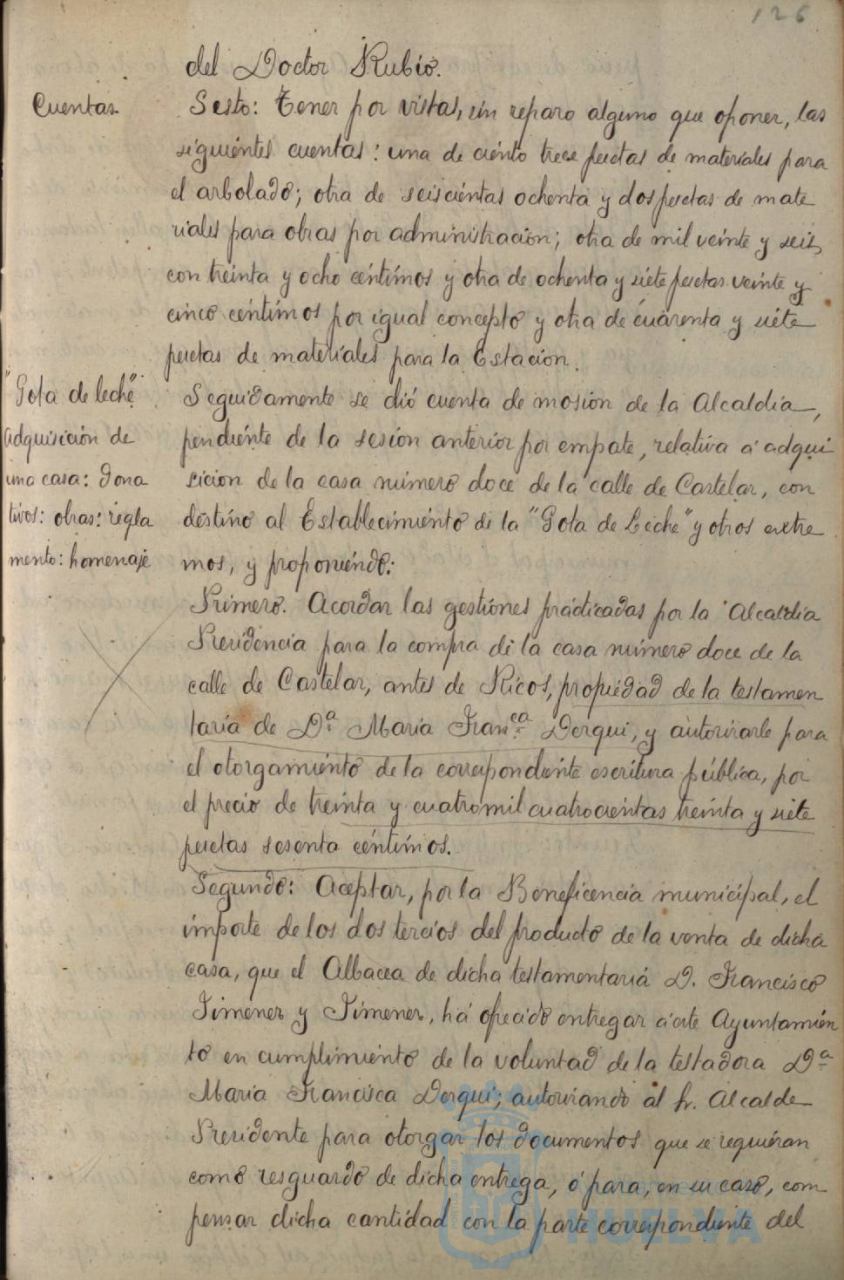 126
del Doctor Rubio.
Cuentas.
Sesto: Tener por vistas, sin reparo alguno que oponer, las
siguientes cuentas: una de ciento trece pesetas de materiales para
el arbolado; otra de seiscientas ochenta y dos pesetas de mate
riales para obras por administración; otra de mil veinte y seis,
con treinta y ocho céntimos y otra de ochenta y siete pesetas veinte y
cinco céntimos por igual concepto y otra de cuarenta y siete
pesetas de materiales para la Estacion.
"Gota de leche".
adquisición de
una casa: dona
tivos: obras: regla
mento: homenaje
Seguidamente se dió cuenta de mosion de la Alcaldía,
pendiente de la sesión anterior por empate, relativa á adqui
sicion de la casa número doce de la calle de Castelar, con
destino al Establecimiento de la "Gota de Leche" y otros extre
mos, y proponiendo:
Primero. Acordar las gestiones practicadas por la Alcaldía
Presidencia para la compra de la casa número doce de la
calle de Castelar, antes de Ricos, propiedad de la testamen
taría de Dª María Franca Dorqui, y autorizarle para
el otorgamiento de la correspondiente escritura pública, por
el precio de treinta y cuatro mil cuatrocientas treinta y siete
pesetas sesenta céntimos.
Segundo: Aceptar, por la Beneficencia municipal, el
importe de los dos tercios del producto de la venta de dicha
casa, que el Albacea de dicha testamentaría D. Francisco
Jimenez y Jimenez, há ofrecido entregar á este Ayuntamien
to en cumplimiento de la voluntad de la testadora Dª
María Francisca Dorqui; autorizando al Sr. Alcalde
Presidente para otorgar los documentos que se requieran
como resguardo de dicha entrega, ó para, en su caso, com
pensar dicha cantidad con la parte correspondiente del
HUELVA